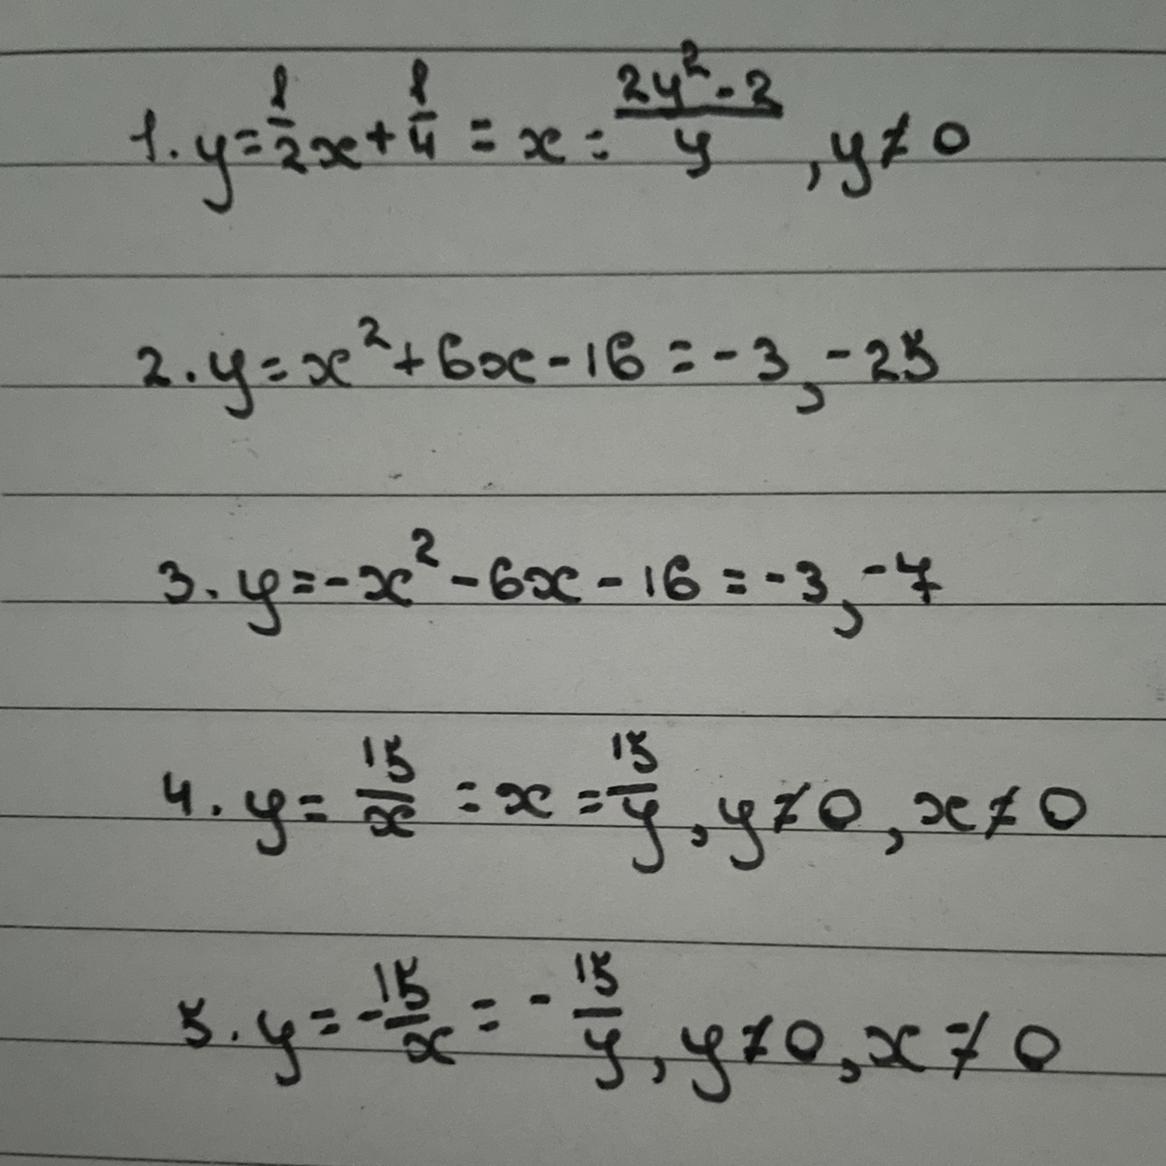 1. y = 1/2 x + 1/4 = x = (2y² - 2)/y , y ≠ 0
2. y = x² + 6x - 16 = -3, -25
3. y = -x² - 6x - 16 = -3, -7
4. y = 15/x = x = 15/y , y ≠ 0, x ≠ 0
5. y = -15/x = -15/y , y ≠ 0, x ≠ 0